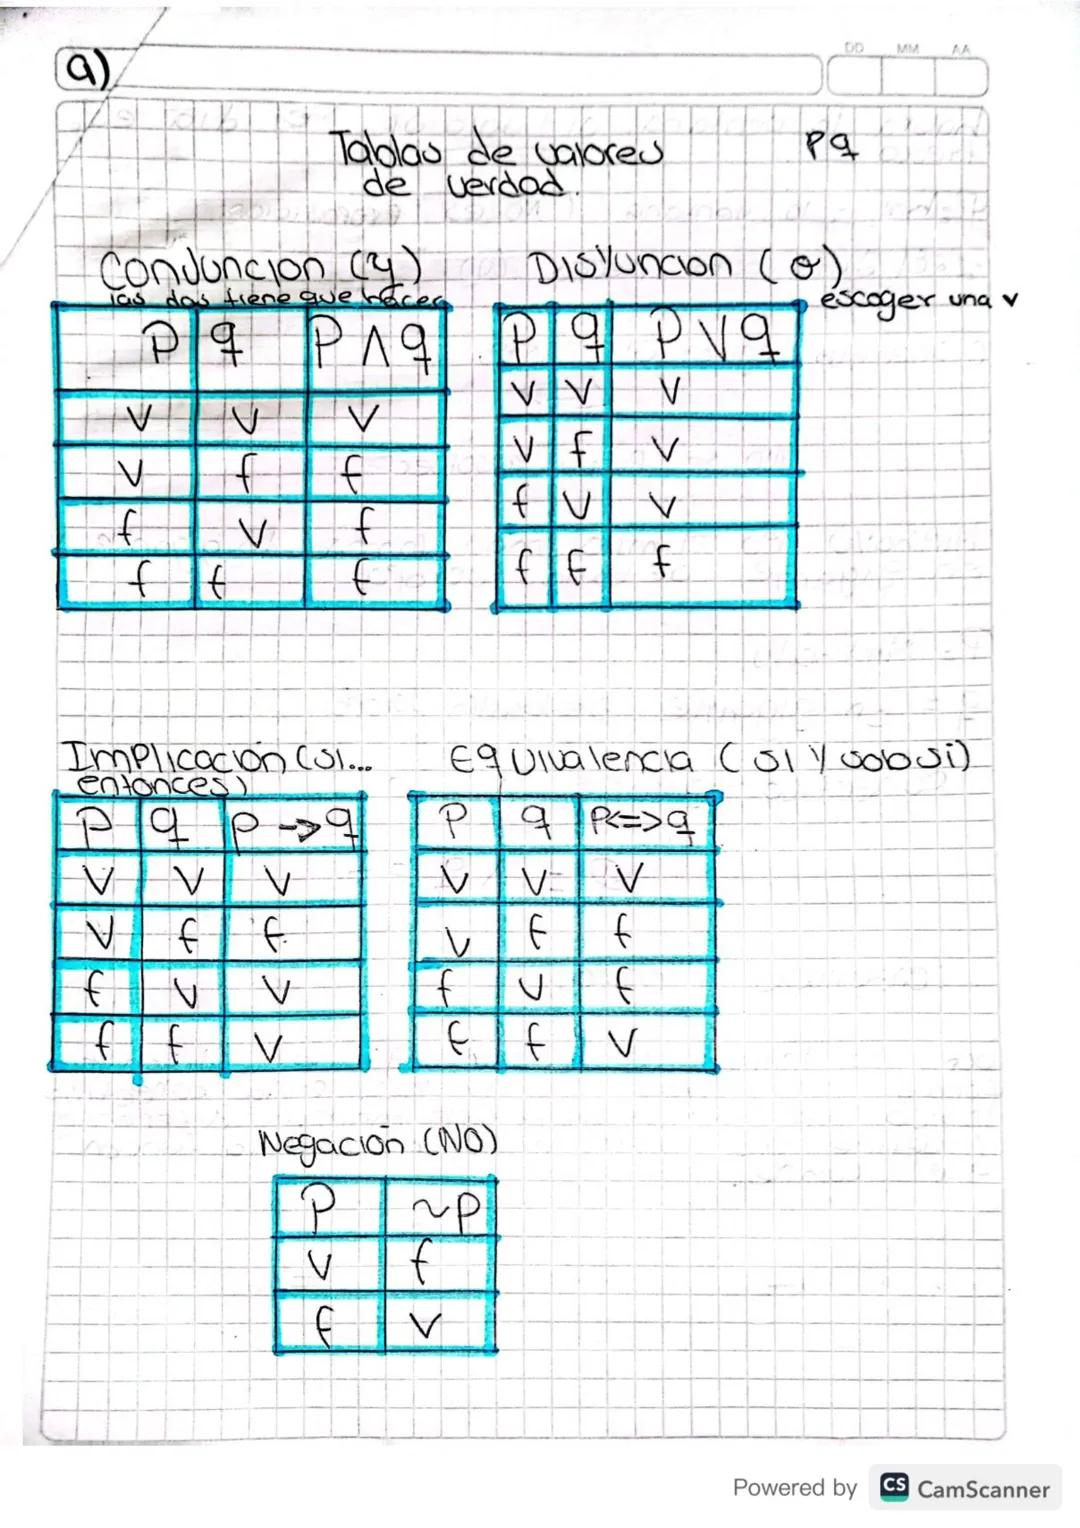 a)
DD MM AA
Tablas de valores
de verdad.
p q
Conjuncion (y)
las dos tiene que hacer
p q p ∧ q
v v v
v f f
f v f
f f f
Disyuncion (o)
escoger una v
p q p ∨ q
v v v
v f v
f v v
f f f
Implicación (si...
entonces)
p q p -> q
v v v
v f f
f v v
f f v
Equivalencia (si y solo si)
p q p<=>q
v v v
v f f
f v f
f f v
Negación (NO)
p ~p
v f
f v
Powered by CS CamScanner